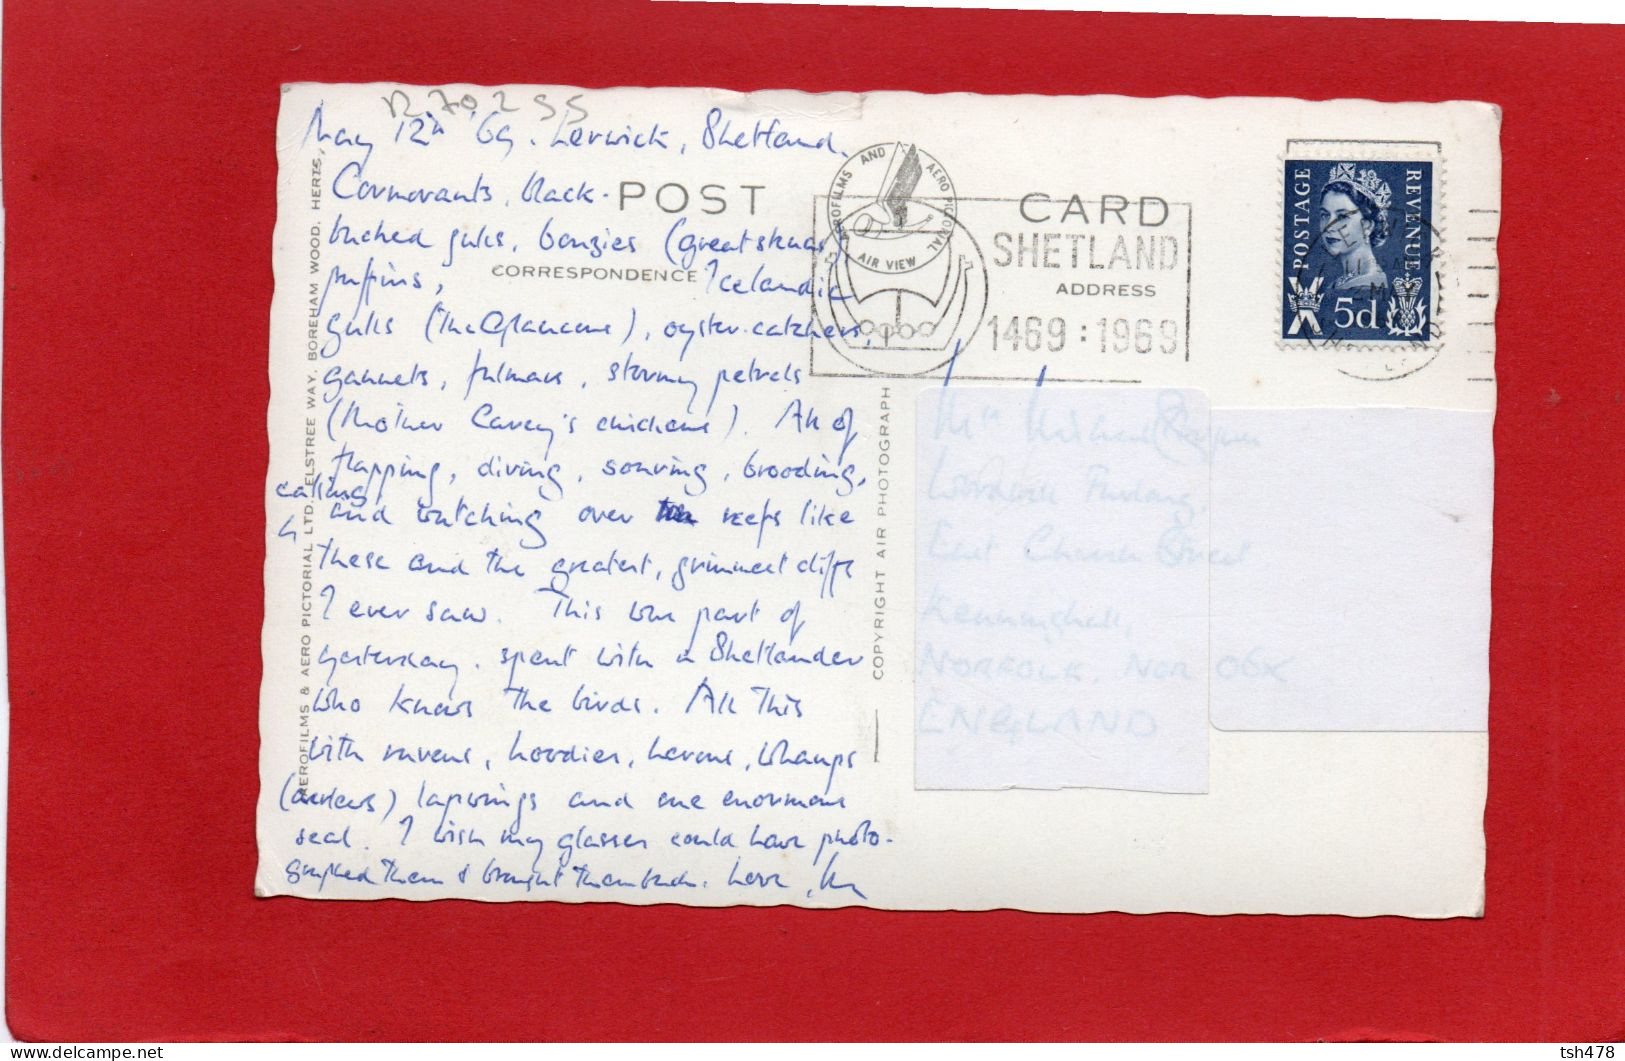 R 70255
May 12th '69. Lerwick, Shetland.
Cormorants, black-
backed gulls, bonxies (great skuas)
puffins, Icelandic
gulls (the Glaucous), oyster-catchers,
gannets, fulmars, stormy petrels
(Mother Carey's chickens). All of
flapping, diving, soaring, brooding,
calling
and watching over reefs like
these and the greatest, grimmest cliffs
I ever saw. This was part of
yesterday, spent with a Shetlander
who knows the birds. All this
with ravens, hoodies, herons, whaups
(curlews) lapwings and one enormous
seal. I wish my glasses could have photo-
graphed them & brought them back. Love,
POST CARD
CORRESPONDENCE
ADDRESS
AEROFILMS AND AERO PICTORIAL
AIR VIEW
AEROFILMS & AERO PICTORIAL LTD. ELSTREE WAY, BOREHAM WOOD, HERTS,
COPYRIGHT AIR PHOTOGRAPH
SHETLAND
1469 : 1969
POSTAGE
REVENUE
5d
East Church Street
Kenninghall,
NORFOLK. NOR 06X
ENGLAND
delcampe.net
tsh478